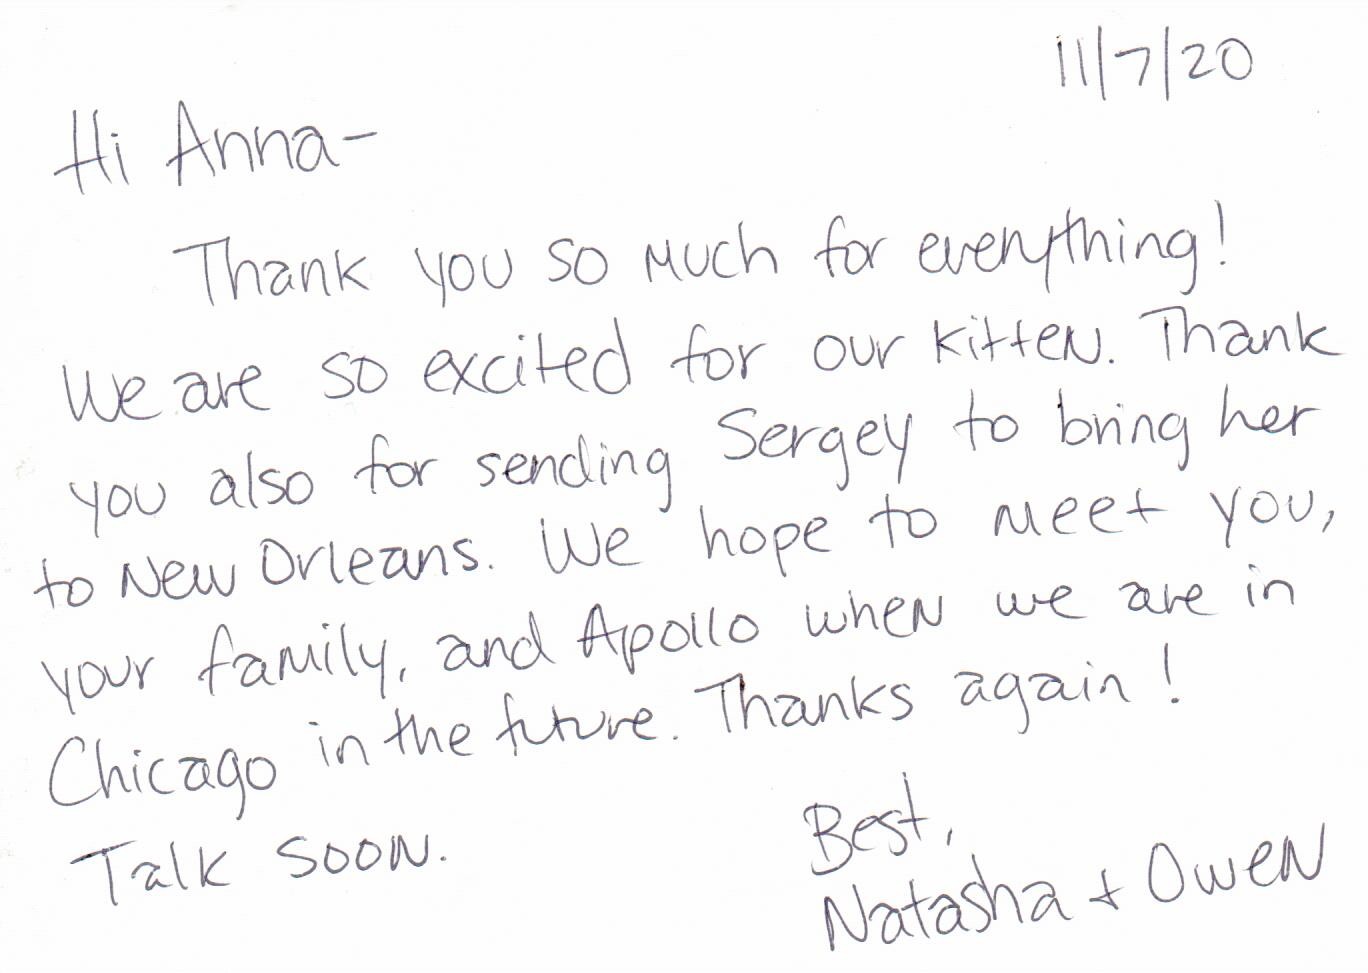 11/7/20
Hi Anna-
Thank you so much for everything!
We are so excited for our kitten. Thank
you also for sending Sergey to bring her
to New Orleans. We hope to meet you,
your family, and Apollo when we are in
Chicago in the future. Thanks again!
Talk soon.
Best,
Natasha + Owen